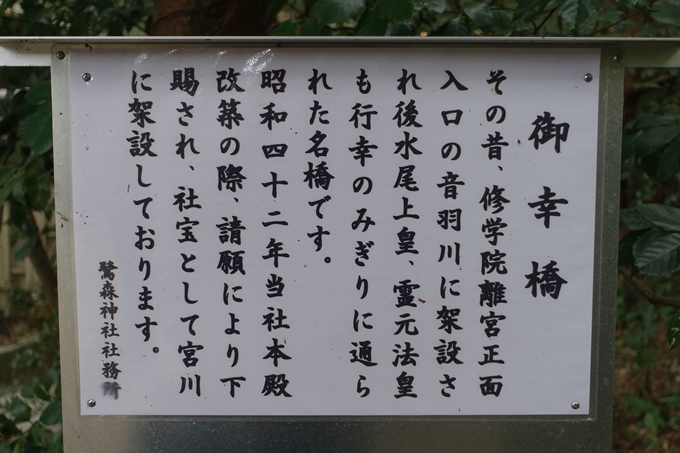 御幸橋
その昔、修学院離宮正面
入口の音羽川に架設さ
れ後水尾上皇、霊元法皇
も行幸のみぎりに通ら
れた名橋です。
昭和四十二年当社本殿
改築の際、請願により下
賜され、社宝として宮川
に架設しております。
鷺森神社社務所